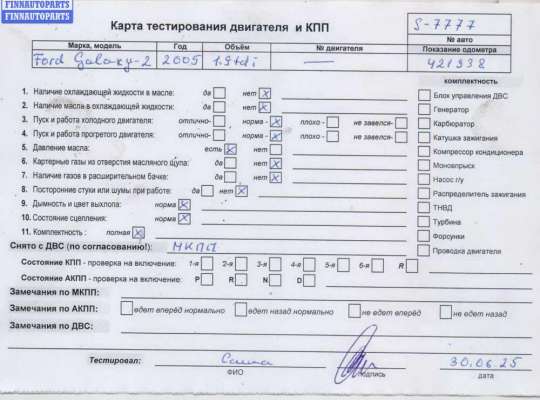 FINNAUTOPARTS
FINNAUTOPARTS
Карта тестирования двигателя и КПП
S-7777
№ авто
Марка, модель Год Объём № двигателя Показание одометра
Ford Galaxy-2 2005 1.9tdi — 421938
комплектность
1. Наличие охлаждающей жидкости в масле: да нет X
Блок управления ДВС
2. Наличие масла в охлаждающей жидкости: да нет X
Генератор
3. Пуск и работа холодного двигателя: отлично- норма - X плохо - не завелся-
Карбюратор
4. Пуск и работа прогретого двигателя: отлично- норма - X плохо - не завелся-
Катушка зажигания
5. Давление масла: есть X нет
Компрессор кондиционера
6. Картерные газы из отверстия масляного щупа: да нет X
Моновпрыск
7. Наличие газов в расширительном бачке: да нет X
Насос г/у
8. Посторонние стуки или шумы при работе: да нет X
Распределитель зажигания
9. Дымность и цвет выхлопа: норма X
ТНВД
10. Состояние сцепления: норма X
Турбина
11. Комплектность : полная X
Форсунки
Снято с ДВС (по согласованию!): МКПП
Проводка двигателя
Состояние КПП - проверка на включение: 1-я 2-я 3-я 4-я 5-я 6-я R
Состояние АКПП - проверка на включение: P R N D
Замечания по МКПП:
Замечания по АКПП: едет вперёд нормально едет назад нормально не едет вперёд не едет назад
Замечания по ДВС:
Тестировал: Саша 30.06.25
ФИО подпись дата